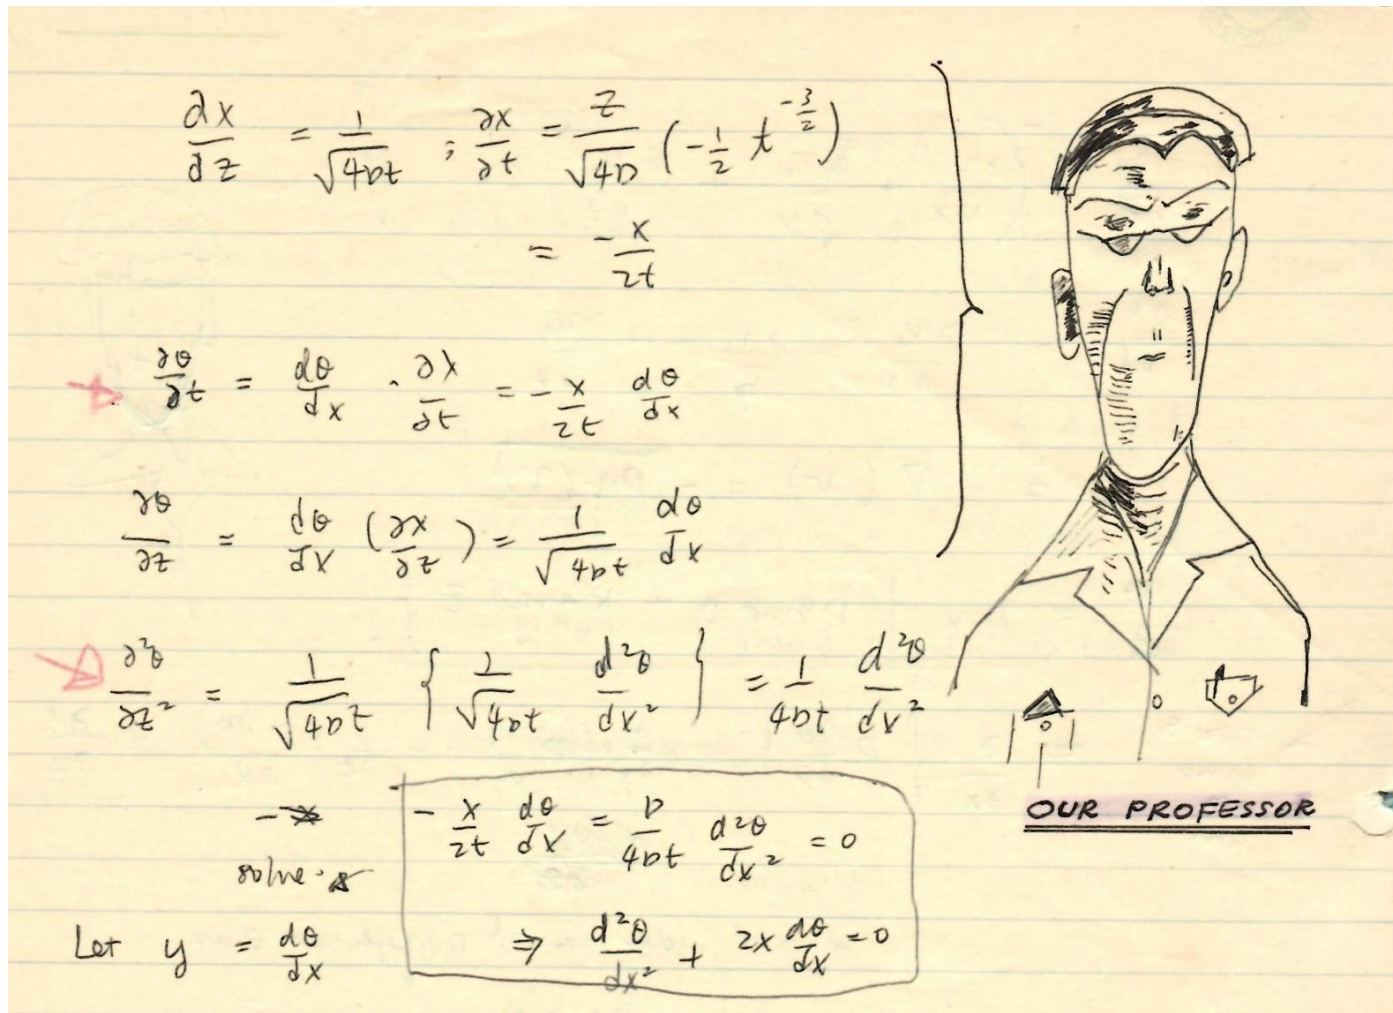 ∂x/dz = 1/√4Dt ; ∂x/∂t = z/√4D (-1/2 t^-3/2)
= -x/2t
∂θ/∂t = dθ/dx · ∂x/∂t = -x/2t dθ/dx
∂θ/∂z = dθ/dx (∂x/∂z) = 1/√4Dt dθ/dx
∂²θ/∂z² = 1/√4Dt { 1/√4Dt d²θ/dx² } = 1/4Dt d²θ/dx²
-x/2t dθ/dx = D/4Dt d²θ/dx² = 0
solve.
Let y = dθ/dx
⇒ d²θ/dx² + 2x dθ/dx = 0
OUR PROFESSOR